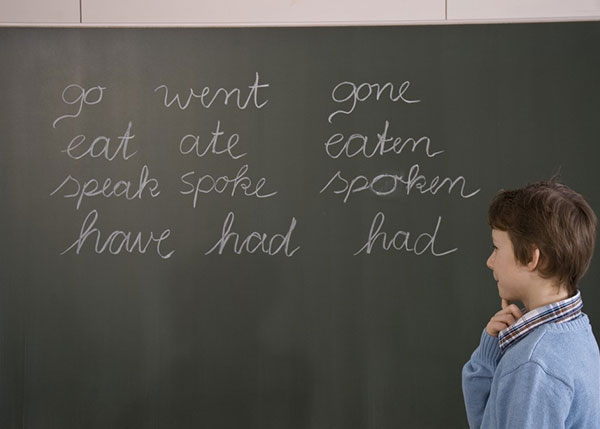 go went gone
eat ate eaten
speak spoke spoken
have had had